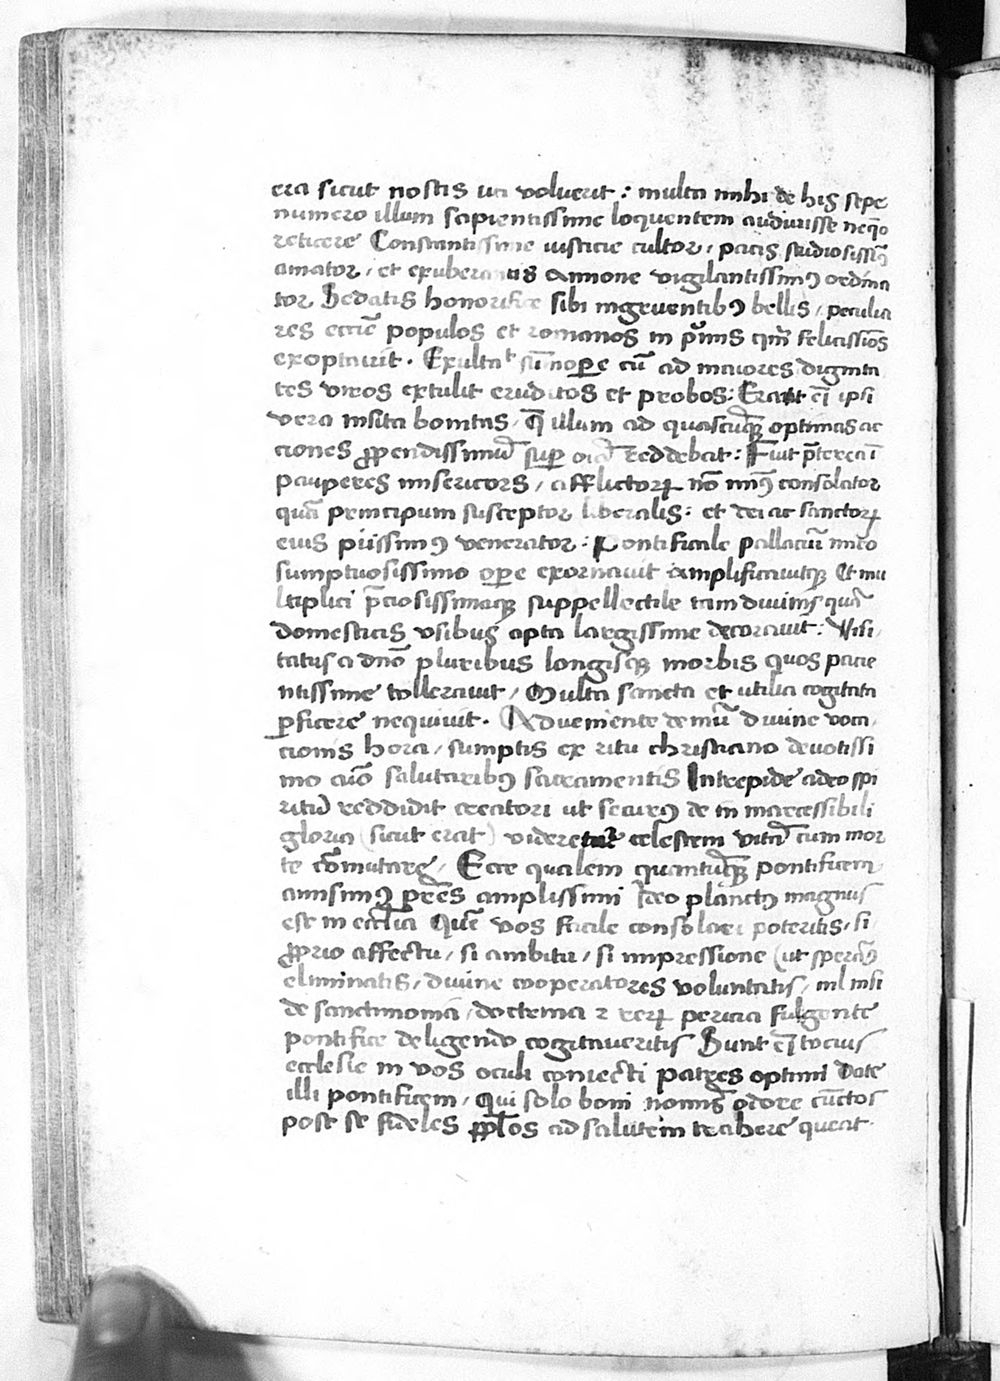 era sicut nostis ita voluerit : multa mihi de his sepe
numero illum sapientissime loquentem audivisse nequo
reticere Constantissime iusticie cultor / pacis studiosissimꝰ
amator / et exuberantis annone vigilantissimꝰ ordina
tor Sedatis honorifice sibi ingruentibꝰ bellis / peculia
res eccīe populos et romanos in pͥmis qm̄ felicissīos
exoptavit . Exultaᵗ sūmoꝑe cū ad maiores dignita
tes viros extulit eruditos et probos : Erat eī ipsi
vera insita bonitas / q̄ illum ad quascūqꝫ optimas ac
ciones ꝓpendissimū suꝑ oīa reddebat : Fuit p̄terea ī
pauperes misericors / afflictoꝝ nō minꝰ consolator
quā principum susceptor liberalis : et dei ac sanctoꝝ
eius piissimꝰ venerator : Pontificale pallaciū miro
sumptuosissimo oꝑe exornavit amplificavitqꝫ Et mu
ltiplici p̄ciosissimaqꝫ suppellectile tam divinis quā
domesticis usibus apta largissime decoravit : Visi
tatus a dn̄o pluribus longisqꝫ morbis quos pacie
ntissime tolleravit / Multa sancta et utilia cogitata
ꝑficere nequivit . Adveniente demū divine voca
cionis hora / sumptis ex ritu christiano devotissi
mo aīo salutaribꝰ sacramentis Intrepide adeo spi
ritū reddidit creatori ut securꝰ de in marcessibili
gloria (sicut erat) videretur celestem vitā cum mor
te cōmutare / Ecce qualem quantūqꝫ pontificem
amisimꝰ pr̄es amplissimi Ideo planctꝰ magnus
est in ecclīa Quē vos facile consolari poteritis / si
ꝓprio affectu / si ambitu / si impressione (ut speramꝰ)
eliminatis / divine cooperatores voluntatis / nil nisi
de sanctimonia / doctrina ⁊ reꝝ pericia fulgente
pontifice deligendo cogitaveritis Sunt eī tocius
ecclesie in vos oculi coniecti patres optimi Date
illi pontificem / qui solo boni nominis odore cūctos
post se fideles ppłos ad salutem trahere queat .